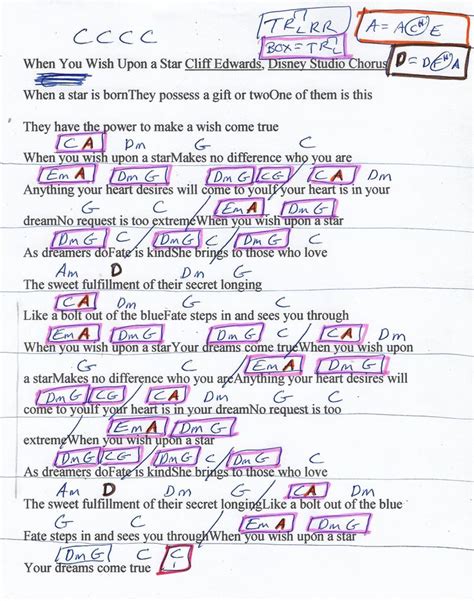 C C C C TRLRR A = A C# E
BOX = TRL
When You Wish Upon a Star Cliff Edwards, Disney Studio Chorus D = D F# A
When a star is bornThey possess a gift or twoOne of them is this
They have the power to make a wish come true
C A Dm G C
When you wish upon a starMakes no difference who you are
Em A Dm G Dm G C G C A Dm
Anything your heart desires will come to youIf your heart is in your
G C Em A Dm G
dreamNo request is too extremeWhen you wish upon a star
Dm G C Dm G C Dm G C
As dreamers doFate is kindShe brings to those who love
Am D Dm G
The sweet fulfillment of their secret longing
C A Dm G C
Like a bolt out of the blueFate steps in and sees you through
Em A Dm G Dm G C C A Dm
When you wish upon a starYour dreams come trueWhen you wish upon
G C Em A Dm G
a starMakes no difference who you areAnything your heart desires will
Dm G C G C A Dm G C
come to youIf your heart is in your dreamNo request is too
Em A Dm G
extremeWhen you wish upon a star
Dm G C G Dm G C Dm G C
As dreamers doFate is kindShe brings to those who love
Am D Dm G C A Dm
The sweet fulfillment of their secret longingLike a bolt out of the blue
G C Em A Dm G
Fate steps in and sees you throughWhen you wish upon a star
Dm G C C
Your dreams come true